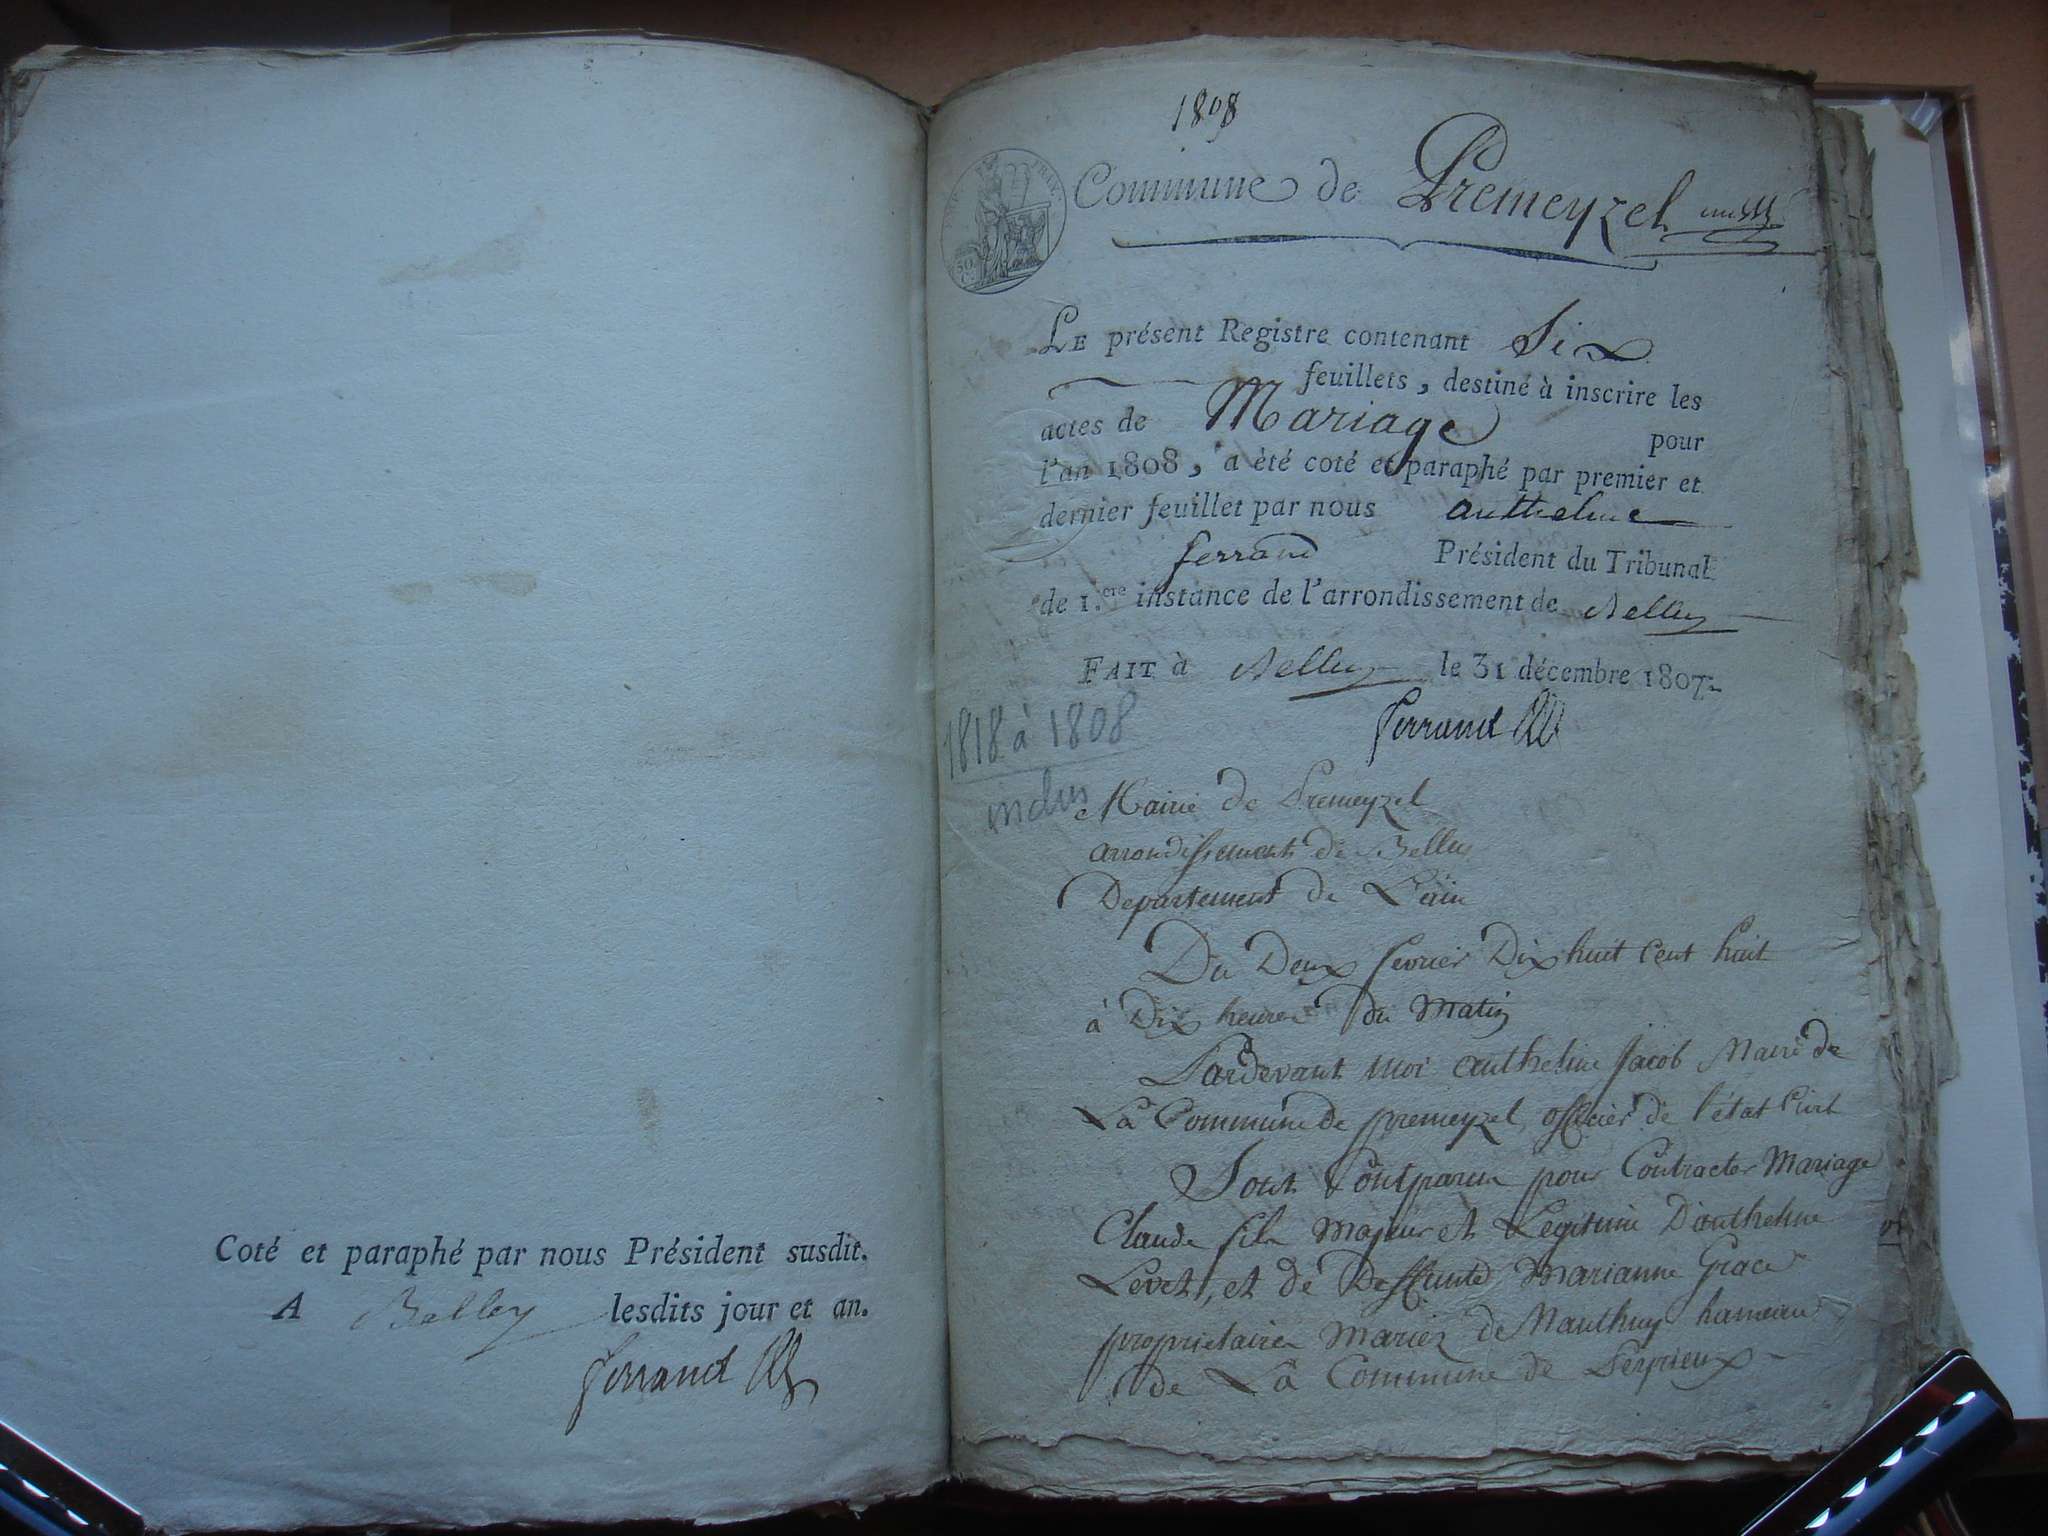 Coté et paraphé par nous Président susdit.
A Belley lesdits jour et an.
ferrand
1808
Commune de Premeyzel
50
LE présent Registre contenant Six
feuillets, destiné à inscrire les
actes de Mariage pour
l'an 1808, a été coté et paraphé par premier et
dernier feuillet par nous anthelme
ferrand Président du Tribunal
de 1.ere instance de l'arrondissement de Belley
FAIT à Belley le 31 décembre 1807.
ferrand
1818 à 1808
inclus
Mairie de Premeyzel
arrondissement de Belley
Departement de L'ain
Du Deux fevrier Dix huit Cent huit
à Dix heures du Matin
Pardevant moi anthelme Jacob Maire de
La Commune de premeyzel, officier de l'état Civil
Sont Comparu pour Contracter Mariage
Claude fils Majeur et Legitime D'anthelme
Levet, et de Deffunte Marianne Grace
proprietaires Mariez de Nanthuy hameau
de La Commune de Peyrieux